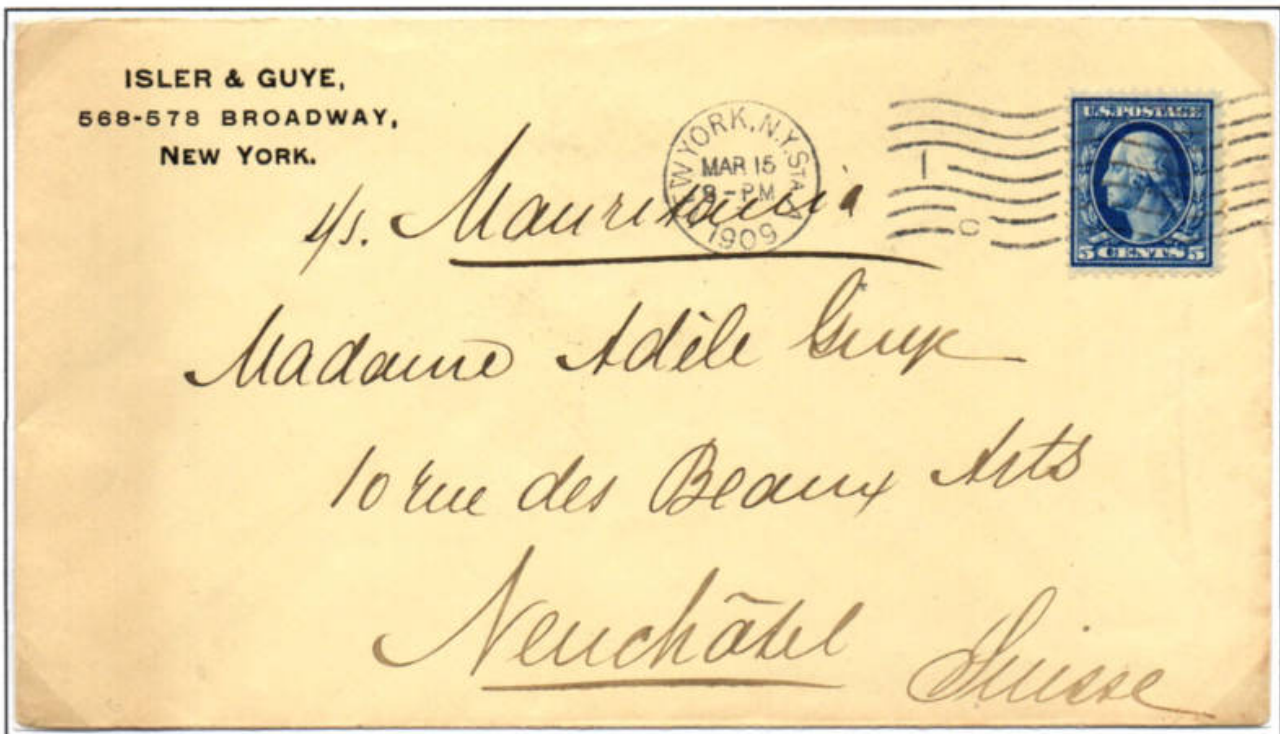 ISLER & GUYE,
568-578 BROADWAY,
NEW YORK.
NEW YORK, N.Y. STA. A
MAR 15
8-PM
1909
1
C
U.S. POSTAGE
5 CENTS 5
s/s. Mauritania
Madame Adèle Guye
10 rue des Beaux Arts
Neuchâtel
Suisse